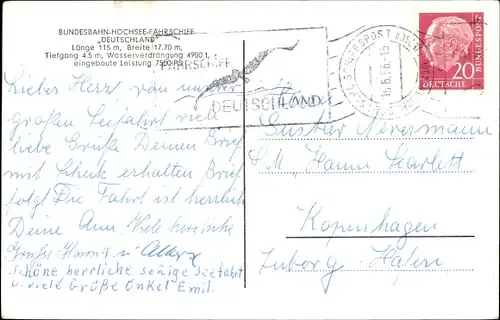 BUNDESBAHN-HOCHSEE-FÄHRSCHIFF
„DEUTSCHLAND“
Länge 115 m, Breite 17.70 m,
Tiefgang 4.5 m, Wasserverdrängung 4900 t,
eingebaute Leistung 7500 PS
FÄHRSCHIFF
DEUTSCHLAND
DEUTSCHE
BUNDESPOST
20
Lieber Herz von unserer
großen Seefahrt viel
liebe Grüße Deinen Brief
mit Scheck erhalten Brief
folgt Die Fahrt ist herrlich
Deine Ann. Viele herzliche
Grüße
Schöne herrliche Seefahrt
u. viele Grüße Onkel Emil.
Herrn
Gustav Nevermann
S M „Hanne Scarlett
Kopenhagen
Hafen